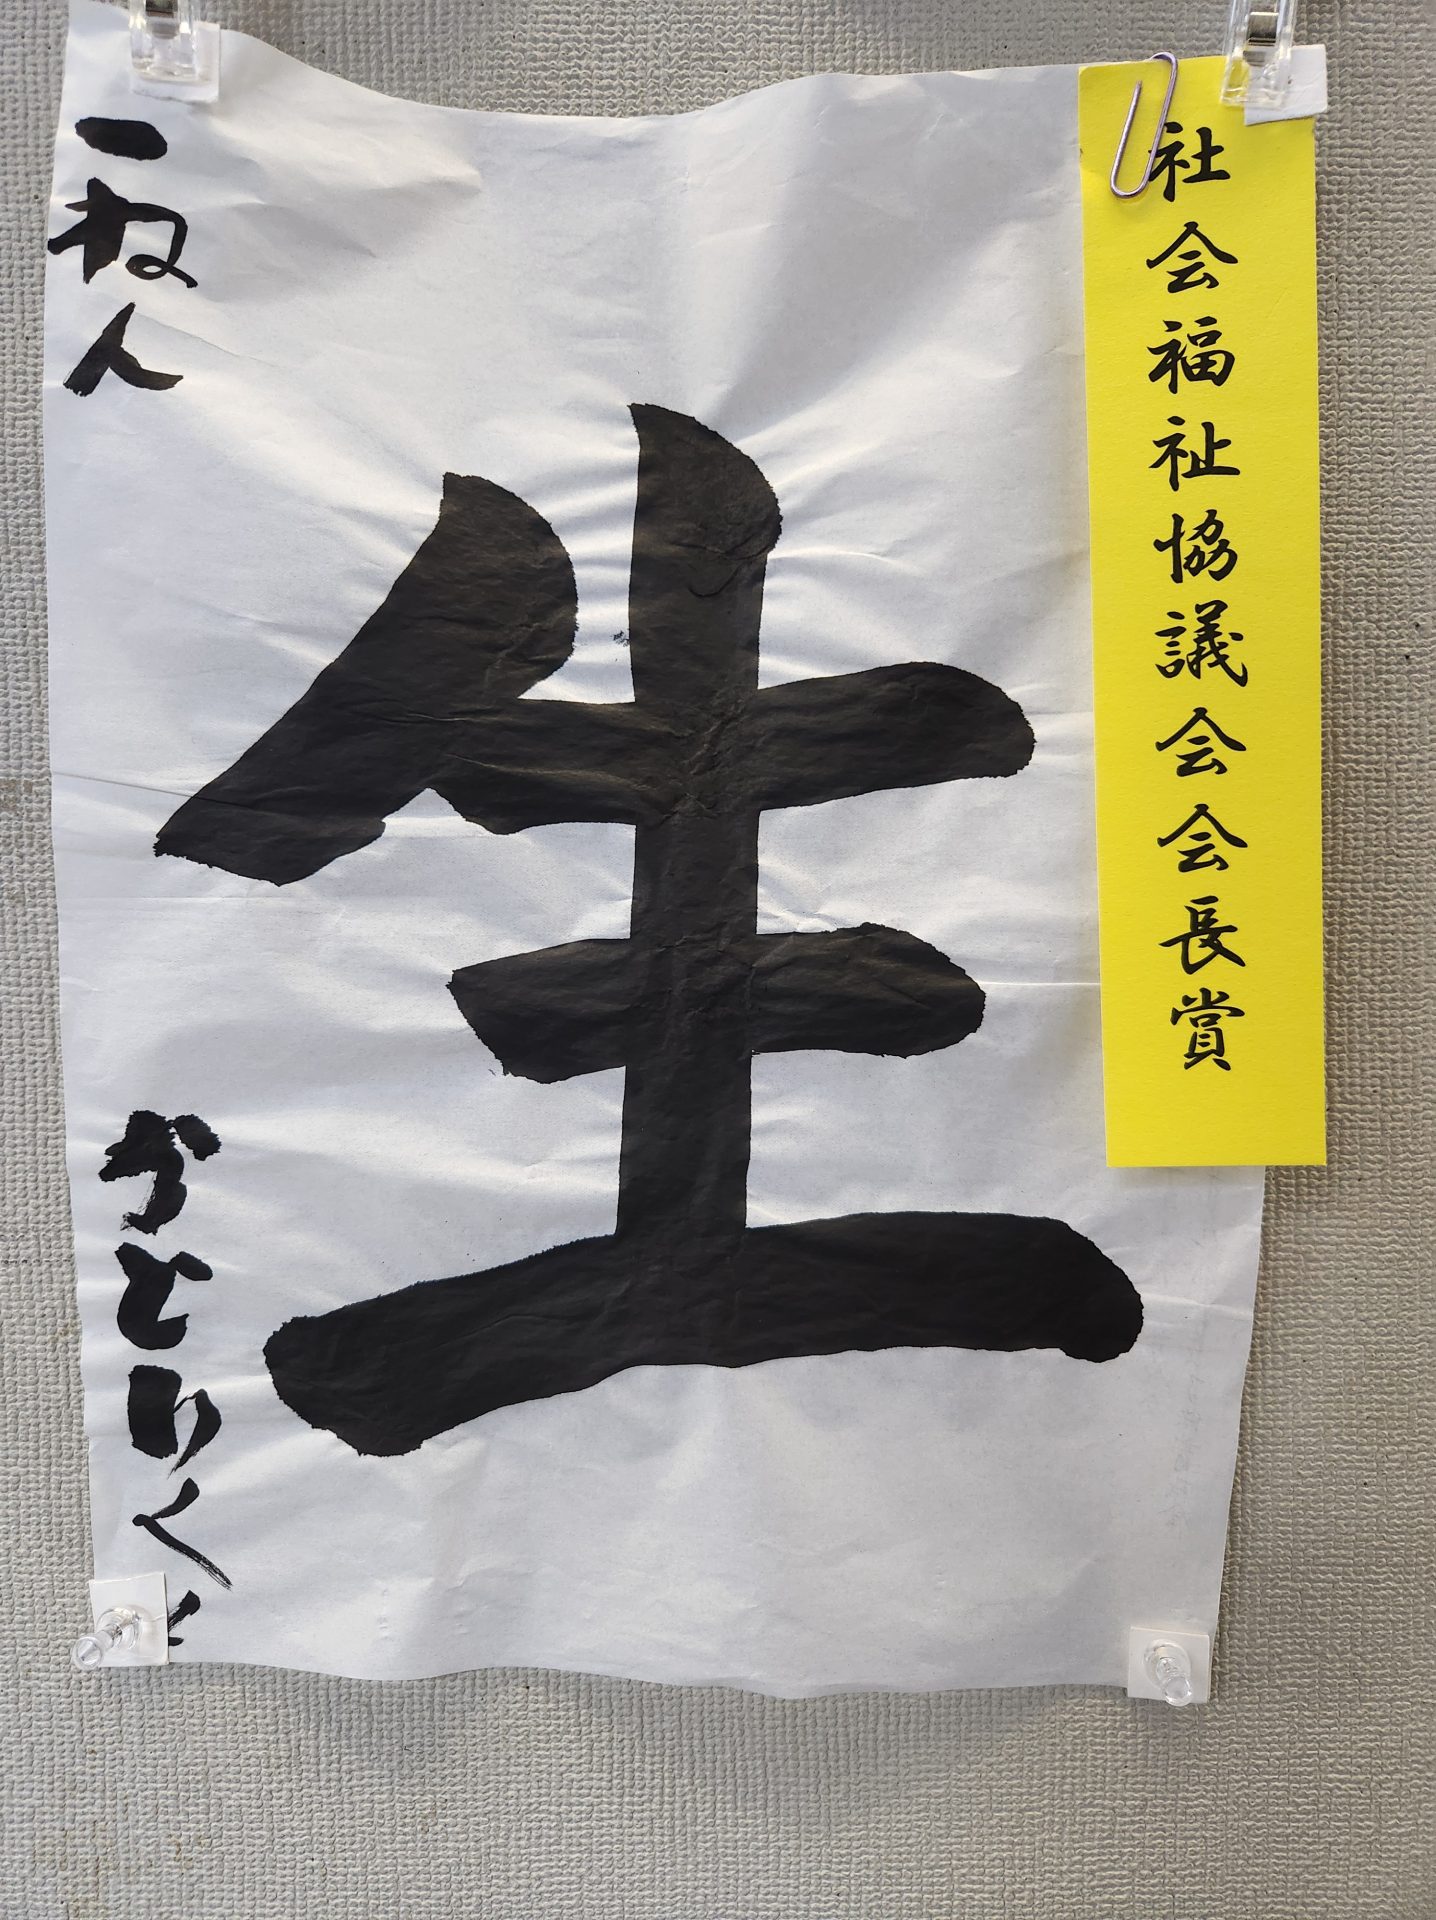 社会福祉協議会会長賞
生
一ねん
かとりく